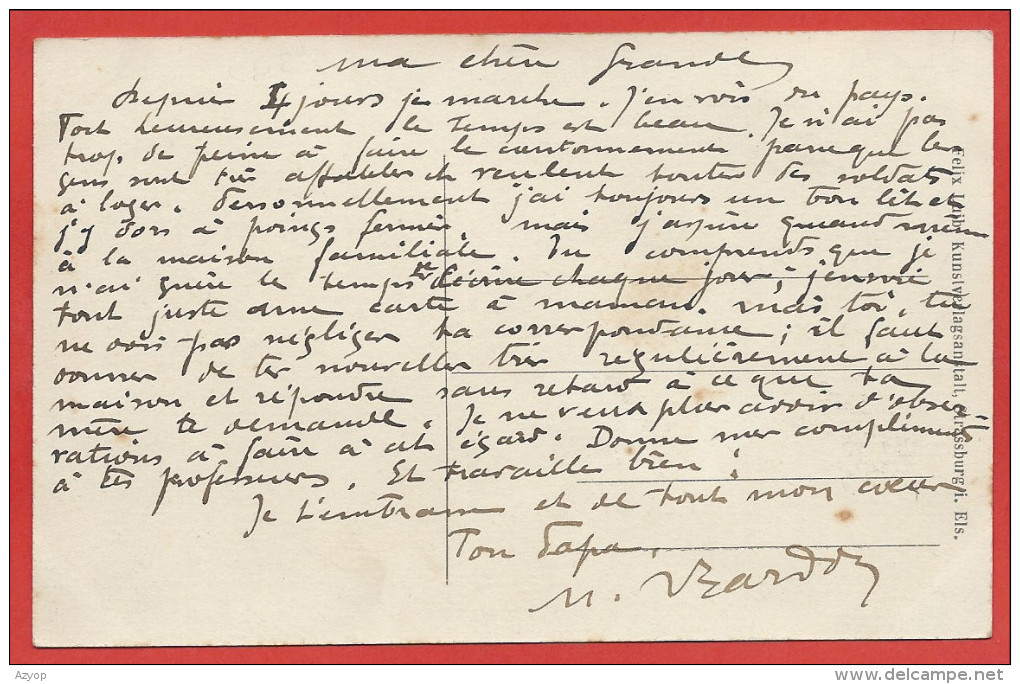 ma chère Grande
Depuis 4 jours je marche. J'en vois du pays.
Fort heureusement le temps est beau. Je n'ai pas
trop de peine à faire le cantonnement parce que les
gens sont très affables et veulent toutes des soldats
à loger. Personnellement j'ai toujours un bon lit et
j'y dors à poings fermés, mais j'aspire quand même
à la maison familiale. Tu comprends que je
n'ai guère le temps d'écrire chaque jour; j'envoie
tout juste une carte à maman. Mais toi, tu
ne dois pas négliger ta correspondance; il faut
donner de tes nouvelles très régulièrement à la
maison et répondre sans retard à ce que ta
mère te demande. Je ne veux plus avoir d'obser-
vations à faire à cet égard. Donne mes compliments
à tes professeurs. Et travaille bien!
Je t'embrasse et de tout mon cœur
Ton Papa.
M.
Felix Luib, Kunstverlagsanstalt, Strassburg i. Els.
Azyop
www.delcampe.net